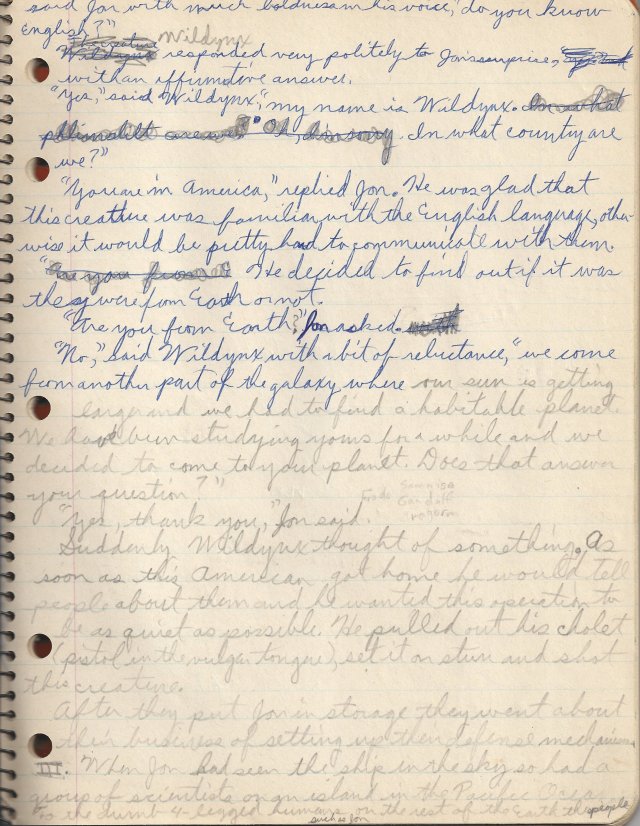 said Jon with much boldness in his voice, "do you know
English?"
Wildynx
Wildynx responded very politely to Jon's surprise,
with an affirmative answer.
"Yes," said Wildynx, "my name is Wildynx. In what
Oh, I'm sorry. In what country are
we?"
"You are in America," replied Jon. He was glad that
this creature was familiar with the English language, other-
wise it would be pretty hard to communicate with them.
"Are you from He decided to find out if it was
they were from Earth or not.
"Are you from Earth?" Jon asked.
"No," said Wildynx with a bit of reluctance, "we come
from another part of the galaxy where our sun is getting
larger and we had to find a habitable planet.
We have been studying yours for a while and we
decided to come to your planet. Does that answer
your question?"
Frodo Samwise
Gandalf
Aragorn
"Yes, thank you," Jon said.
Suddenly Wildynx thought of something. As
soon as this American got home he would tell
people about them and he wanted this operation to
be as quiet as possible. He pulled out his cholet
(pistol in the vulgar tongue), set it on stun and shot
this creature.
After they put Jon in storage they went about
their business of setting up their defense mechanisms
III. When Jon had seen the ship in the sky so had a
group of scientists on an island in the Pacific Ocean
To the dumb 4-legged humans on the rest of the Earth the people
such as Jon